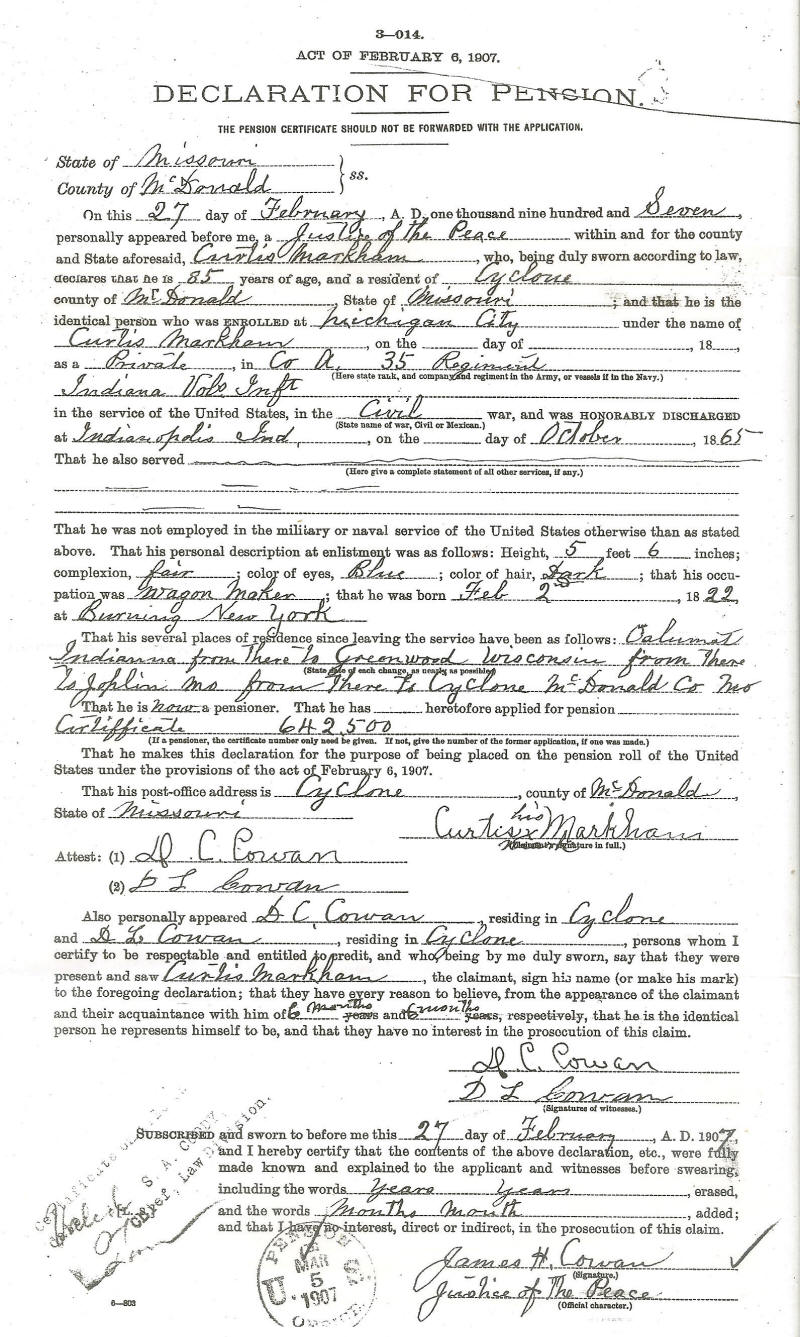 3—014.
ACT OF FEBRUARY 6, 1907.
DECLARATION FOR PENSION.
THE PENSION CERTIFICATE SHOULD NOT BE FORWARDED WITH THE APPLICATION.
State of Missouri
County of McDonald } ss.
On this 27 day of February, A. D. one thousand nine hundred and Seven,
personally appeared before me, a Justice of the Peace within and for the county
and State aforesaid, Curtis Markham, who, being duly sworn according to law,
declares that he is 85 years of age, and a resident of Cyclone
county of McDonald, State of Missouri; and that he is the
identical person who was ENROLLED at Michigan City under the name of
Curtis Markham, on the day of , 18 ,
as a Private, in Co A, 35 Regiment
(Here state rank, and company and regiment in the Army, or vessels if in the Navy.)
Indiana Vols Inft
in the service of the United States, in the Civil war, and was HONORABLY DISCHARGED
(State name of war, Civil or Mexican.)
at Indianopolis Ind, on the day of October, 1865
That he also served
(Here give a complete statement of all other services, if any.)
That he was not employed in the military or naval service of the United States otherwise than as stated
above. That his personal description at enlistment was as follows: Height, 5 feet 6 inches;
complexion, fair; color of eyes, Blue; color of hair, Dark; that his occu-
pation was Wagon Maker; that he was born Feb 2, 1822,
at Burning New York
That his several places of residence since leaving the service have been as follows: Calumat
Indianna from There to Greenword Wisconsin from There
(State date of each change, as nearly as possible)
To Joplin Mo from There To Cyclone McDonald Co Mo
That he is now a pensioner. That he has heretofore applied for pension
Certifficate 642,500
(If a pensioner, the certificate number only need be given. If not, give the number of the former application, if one was made.)
That he makes this declaration for the purpose of being placed on the pension roll of the United
States under the provisions of the act of February 6, 1907.
That his post-office address is Cyclone, county of McDonald,
State of Missouri
his
Curtis x Markham
(Claimant's signature in full.)
Attest: (1) D. C. Cowan
(2) D L Cowan
Also personally appeared D C, Cowan, residing in Cyclone
and D L Cowan, residing in Cyclone, persons whom I
certify to be respectable and entitled to credit, and who, being by me duly sworn, say that they were
present and saw Curtis Markham, the claimant, sign his name (or make his mark)
to the foregoing declaration; that they have every reason to believe, from the appearance of the claimant
and their acquaintance with him of 6 months years and 6 months years, respectively, that he is the identical
person he represents himself to be, and that they have no interest in the prosecution of this claim.
D. C. Cowan
D L Cowan
(Signatures of witnesses.)
SUBSCRIBED and sworn to before me this 27 day of February, A. D. 1907,
and I hereby certify that the contents of the above declaration, etc., were fully
made known and explained to the applicant and witnesses before swearing,
including the words years years, erased,
and the words Months Month, added;
and that I have no interest, direct or indirect, in the prosecution of this claim.
James H. Cowan
(Signature.)
Justice of The Peace
(Official character.)
S. A.
Chief, Law Division.
U. S. PENSION OFFICE
MAR
5
1907
6—803